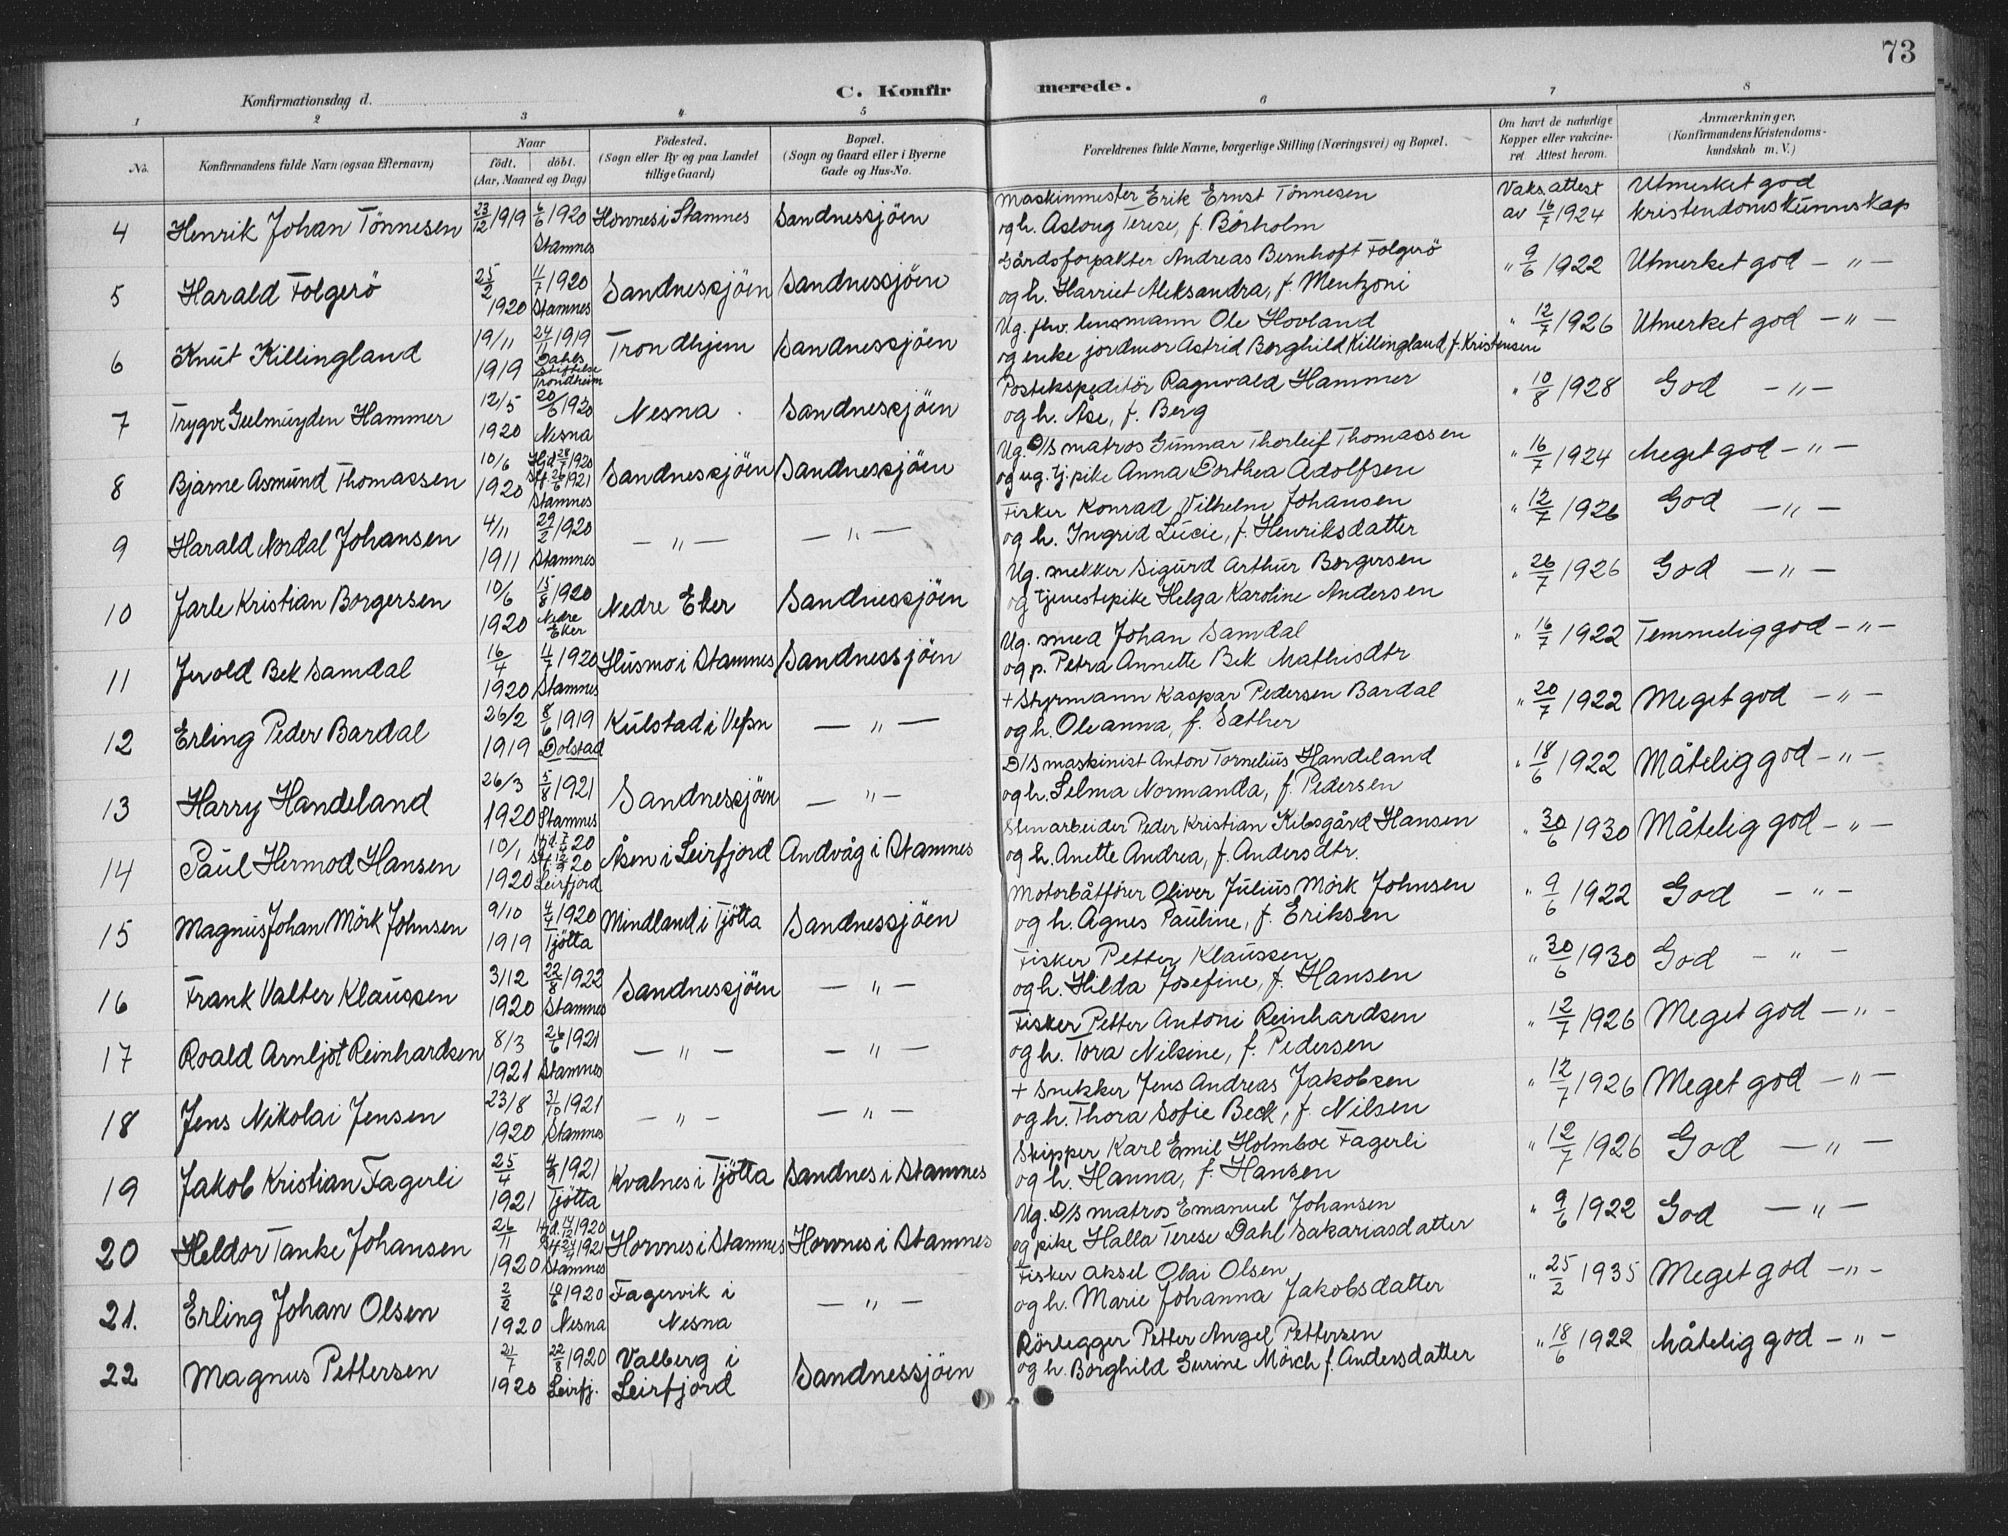 73
Konfirmationsdag d. C. Konfirmerede.
1 2 3 4 5 6 7 8
No. Konfirmandens fulde Navn (ogsaa Efternavn) Naar født. døbt. (Aar, Maaned og Dag) Fødested. (Sogn eller By og paa Landet tillige Gaard) Bopæl. (Sogn og Gaard eller i Byerne Gade og Hus-No. Forældrenes fulde Navne, borgerlige Stilling (Næringsvei) og Bopæl. Om havt de naturlige Kopper eller vakcineret Attest herom. Anmærkninger. (Konfirmandens Kristendomskundskab m. V.)
4 Henrik Johan Tönnesen 23/12 1919 6/6 1920 Stamnes Hovnes i Stamnes Sandnessjöen Maskinmester Erik Ernst Tönnesen
og h. Aslaug Terese, f. Börholm Vaks. attest av 16/7 1924 Utmerket god kristendomskunnskap
5 Harald Folgerö 25/2 1920 11/7 1920 Stamnes Sandnessjöen Sandnessjöen Gårdsforpakter Andreas Bernhoft Folgerö
og h. Harriet Aleksandra, f. Mentzoni " 9/6 1922 Utmerket god - " -
6 Knut Killingland 19/11 1919 24/11 1919 Dahls Stiftelse Trondheim Trondhjem Sandnessjöen Ug. fhv. lensmann Ole Hovland
og enke jordmor Astrid Borghild Killingland f. Kristensen " 12/7 1926 Utmerket god - " -
7 Trygve Geelmuyden Hammer 12/5 1920 20/6 1920 Nesna Nesna Sandnessjöen Postekspeditör Ragnvald Hammer
og h. Åse, f. Berg " 10/8 1928 God - " -
8 Bjarne Asmund Thomassen 10/6 1920 Hjd. 28/7 1920 St. 26/6 1921 Stamnes Sandnessjöen Sandnessjöen Ug. D/S matros Gunnar Thorleif Thomassen
og ug. tj. pike Anna Dorthea Adolfsen " 16/7 1924 Meget god - " -
9 Harald Nordal Johansen 4/11 1911 29/2 1920 Stamnes - " - - " - Fisker Konrad Vilhelm Johansen
og h. Ingrid Lucie, f. Henriksdatter " 12/7 1926 God - " -
10 Jarle Kristian Borgersen 10/6 1920 15/8 1920 Nedre Eker Nedre Eker Sandnessjöen Ug. snekker Sigurd Arthur Borgersen
og tjenestepike Helga Karoline Andersen " 26/7 1926 God - " -
11 Jerold Bek Samdal 16/4 1920 11/7 1920 Stamnes Husmo i Stamnes Sandnessjöen Ug. smed Johan Samdal
og p. Petra Annette Bek Mathisdtr " 16/7 1922 Temmelig god - " -
12 Erling Peder Bardal 26/2 1919 8/6 1919 Dolstad Kulstad i Vefsn - " - + Styrmann Kaspar Pedersen Bardal
og h. Oleanna, f. Sæther " 20/7 1922 Meget god - " -
13 Harry Handeland 26/3 1920 5/8 1921 Stamnes Sandnessjöen - " - D/S maskinist Anton Tornelius Handeland
og h. Selma Normanda, f. Pedersen " 18/6 1922 Måtelig god - " -
14 Paul Hermod Hansen 10/1 1920 20 20 Leirfjord Åsen i Leirfjord Andvåg i Stamnes Stenarbeider Peder Kristian Kibsgård Hansen
og h. Anette Andrea, f. Andersdtr. " 30/6 1930 Måtelig god - " -
15 Magnus Johan Mörk Johnsen 9/10 1919 4/4 1920 Tjötta Mindland i Tjötta Sandnessjöen Motorbåtförer Oliver Julius Mörk Johnsen
og h. Agnes Pauline, f. Eriksen " 9/6 1922 God - " -
16 Frank Valter Klaussen 3/12 1920 22/8 1922 Stamnes Sandnessjöen - " - Fisker Petter Klaussen
og h. Hilda Josefine, f. Hansen " 30/6 1930 God - " -
17 Roald Arnljot Reinhardsen 8/3 1921 26/6 1921 Stamnes - " - - " - Fisker Petter Antoni Reinhardsen
og h. Tora Nilsine, f. Pedersen " 12/7 1926 Meget god - " -
18 Jens Nikolai Jensen 23/8 1920 31/10 1921 Stamnes - " - - " - + Snekker Jens Andreas Jakobsen
og h. Thora Sofie Beck, f. Nilsen " 12/7 1926 Meget god - " -
19 Jakob Kristian Fagerli 25/4 1921 4/9 1921 Tjötta Kvalnes i Tjötta Sandnes i Stamnes Skipper Karl Emil Holmboe Fagerli
og h. Hanna, f. Hansen " 12/7 1926 God - " -
20 Heldor Tanke Johansen 26/11 1920 Hjd. 1920 St. 1921 Stamnes Hovnes i Stamnes Hovnes i Stamnes Ug. D/S matros Emanuel Johansen
og pike Halla Terese Dahl Sakariasdatter " 9/6 1922 God - " -
21. Erling Johan Olsen 2/2 1920 10/6 1920 Nesna Fagervik i Nesna - " - Fisker Aksel Olai Olsen
og h. Marie Johanna Jakobsdatter " 25/2 1935 Meget god - " -
22 Magnus Pettersen 21/7 1920 22/8 1920 Leirfj. Valberg i Leirfjord Sandnessjöen Rörlegger Petter Angel Pettersen
og h. Borghild Gurine Mörch f. Andersdatter " 18/6 1922 Måtelig god - " -